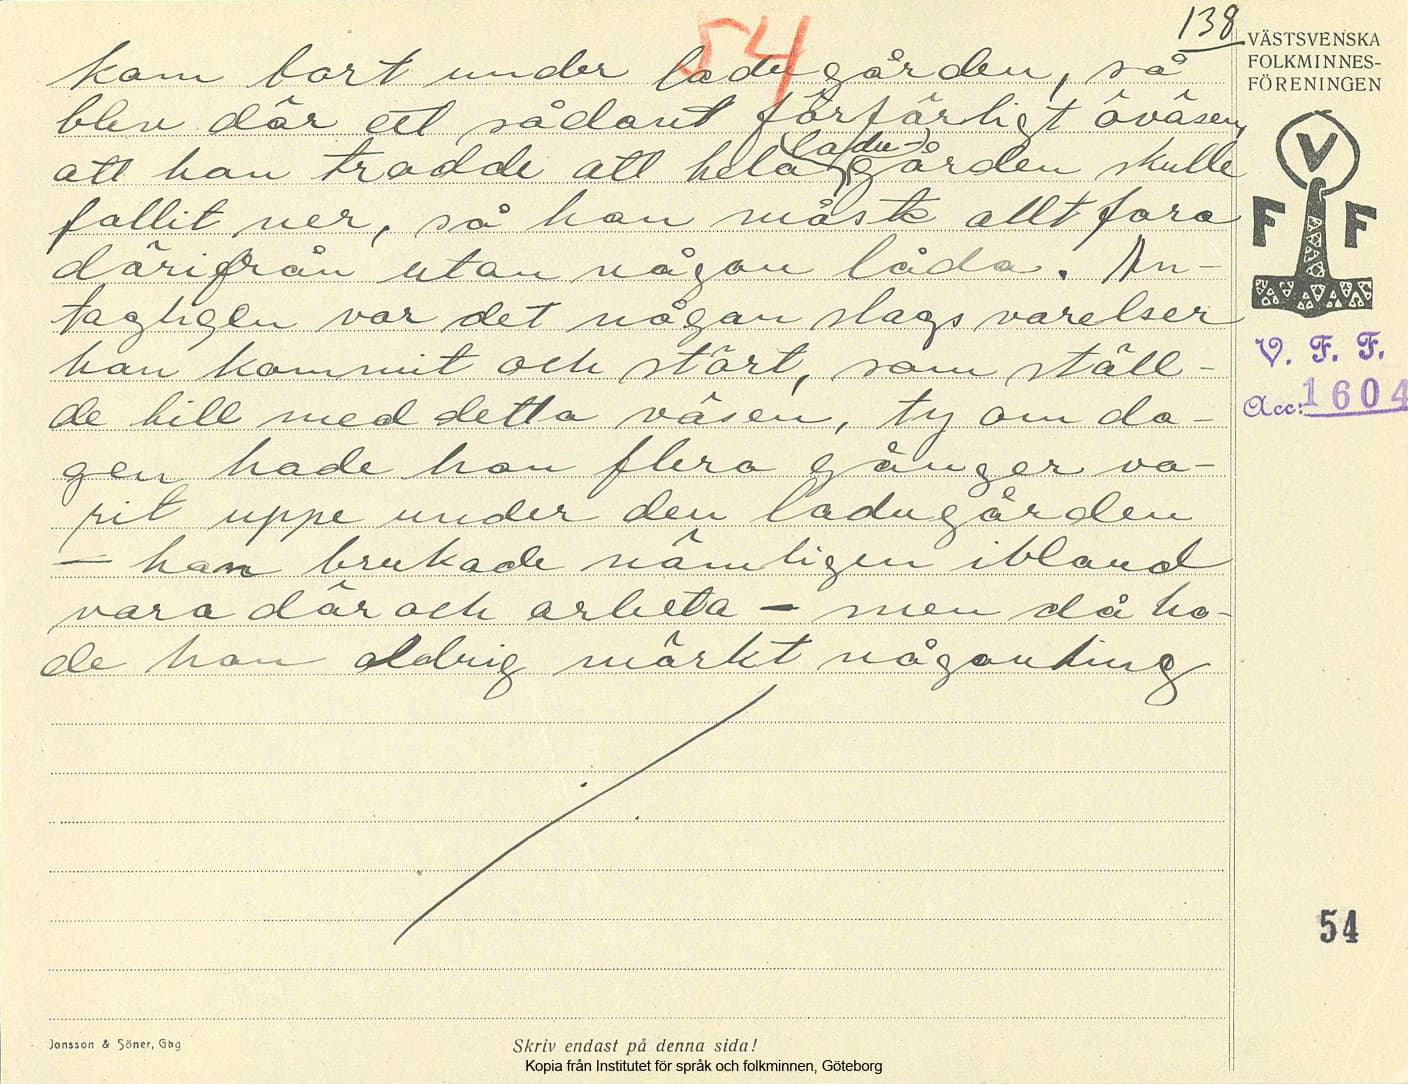 54
138
kom bort under ladugården, så
blev där ett sådant förfärligt oväsen,
att han trodde att hela (ladu-)gården skulle
fallit ner, så han måste allt fara
därifrån utan någon låda. An-
tagligen var det någon slags varelser
han kommit och stört, som ställ-
de till med detta väsen, ty om da-
gen hade han flera gånger va-
rit uppe under den ladugården
— han brukade nämligen ibland
vara där och arbeta — men då ha-
de han aldrig märkt någonting
VÄSTSVENSKA
FOLKMINNES-
FÖRENINGEN
V
F F
V. F. F.
Acc: 1604
54
Jonsson & Söner, Gbg
Skriv endast på denna sida!
Kopia från Institutet för språk och folkminnen, Göteborg